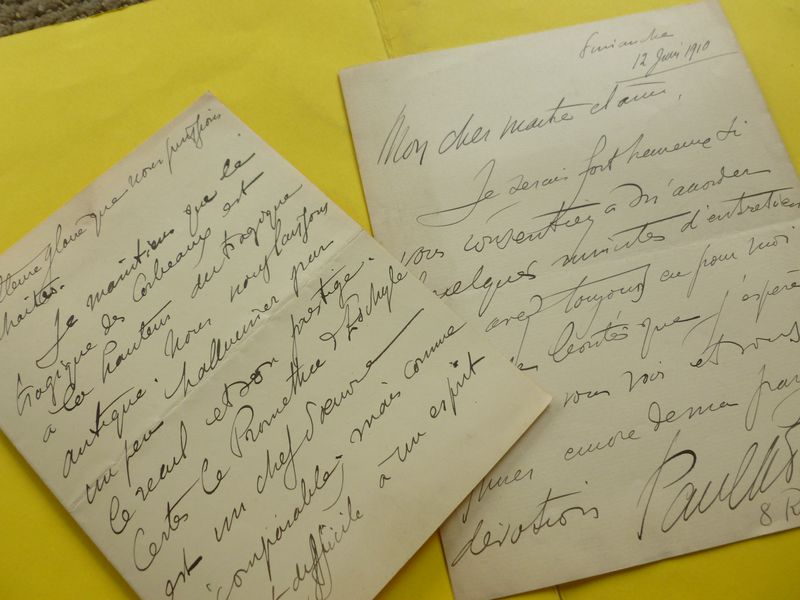 que nous puissions
Je maintiens que le
tragique des Corbeaux est
à la hauteur du tragique
antique. Nous nous laissons
un peu halluciner par
le recul et son prestige.
Certes le Prométhée d'Eschyle
est un chef d'œuvre
comparable, mais comme
difficile à un esprit
Dimanche
12 Juin 1910
Mon cher maître et ami,
Je serais fort heureux si
vous consentiez à m'accorder
quelques minutes d'entretien
avez toujours eu pour moi
bontés que j'espère
vous voir et vous
encore de ma
dévotion
Paul
8 R